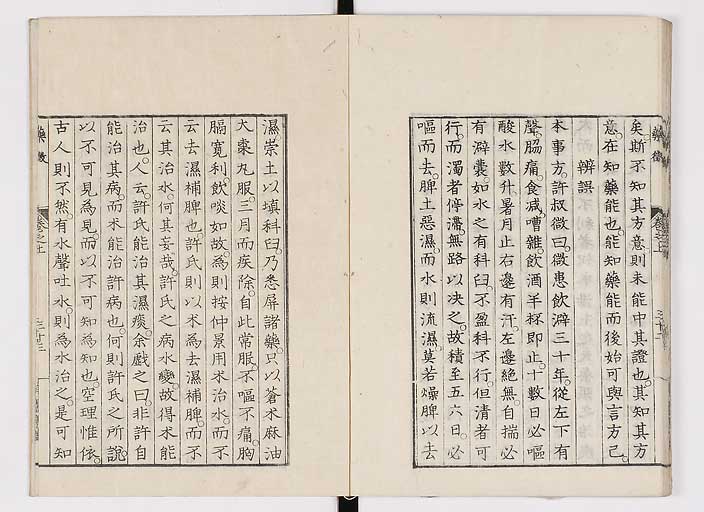 矣。斯不知其方意則未能中其證也。其知其方
意。在知藥能也。能知藥能而後始可與言方已。
辨誤
本事方。許叔微曰。微患飲澼三十年。從左下有
聲。脇痛。食減。嘈雜。飲酒半杯即止。十數日必嘔
酸水數升。暑月止右邊有汗。左邊絕無。自揣必
有澼囊。如水之有科臼。不盈科不行。但清者可
行。而濁者停滯。無路以決之。故積至五六日。必
嘔而去。脾土惡濕。而水則流濕。莫若燥脾以去
濕。崇土以填科臼。乃悉屏諸藥。只以蒼朮麻油
大棗丸服。三月而疾除。自此常服。不嘔不痛。胸
膈寬利。飲啖如故。為則按仲景用朮治水。而不
云去濕補脾也。許氏則以朮為去濕補脾。而不
云其治水。何其妄哉。許氏之病水變。故得朮能
治也。人云。許氏能治其濕痰。余戲之曰。非許自
能治其病。而朮能治許病也。何則許氏之所說。
以不可見為見。而以不可知為知也。空理惟依。
古人則不然。有水聲吐水。則為水治之。是可知
藥徵
卷之上
三十三